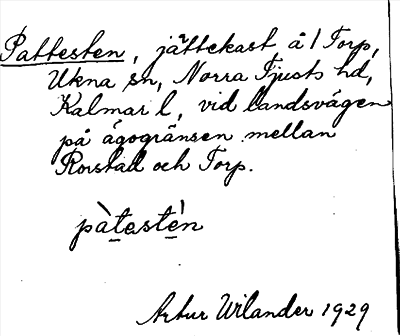 Pattesten, jättekast å 1 Torp,
Ukna sn, Norra Tjusts hd,
Kalmar l, vid landsvägen
på ägogränsen mellan
Rorstad och Torp.
pàtestèn
Artur Wilander 1929